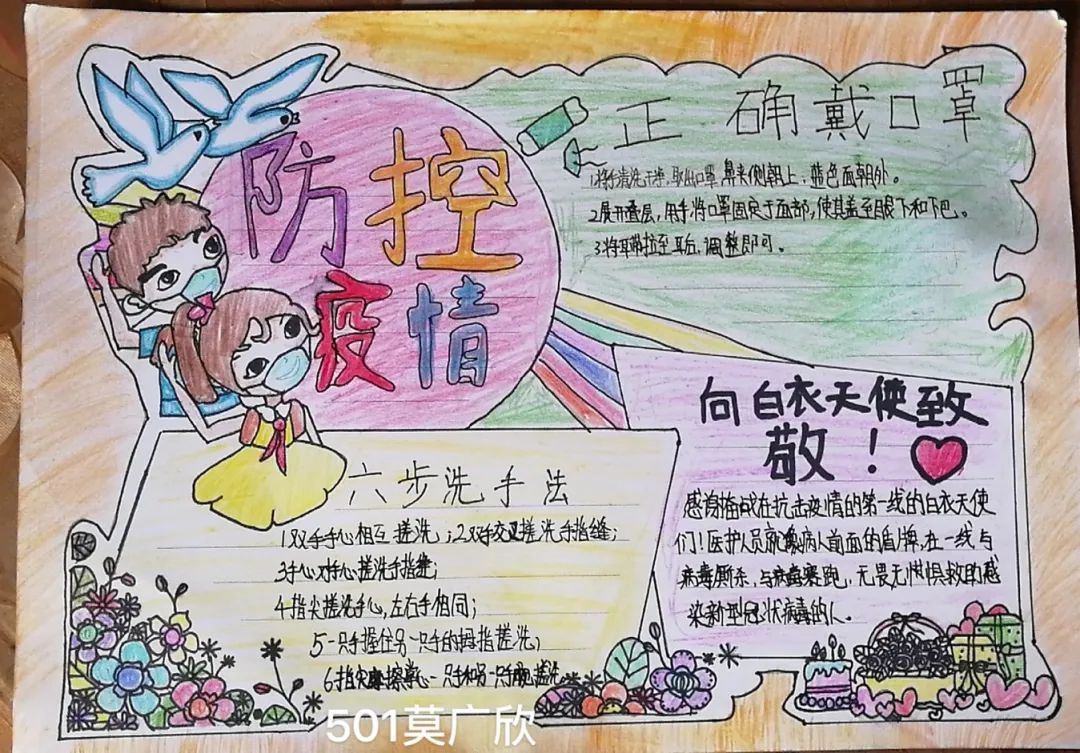 防控
疫情
正确戴口罩
1.将手清洗干净,取出口罩,鼻夹侧朝上,蓝色面朝外。
2.展开叠层,用手将口罩固定于面部,使其盖至眼下和下巴。
3.将耳带拉至耳后,调整即可。
向白衣天使致
敬!
感谢奋战在抗击疫情的第一线的白衣天使
们!医护人员就像病人前面的盾牌,在一线与
病毒厮杀,与病毒赛跑,无畏无惧救助感
染新型冠状病毒的人。
六步洗手法
1.双手手心相互搓洗;2.双手交叉搓洗手指缝;
3.手心对手心搓洗手指缝;
4.指尖搓洗手心,左右手相同;
5.一只手握住另一只手的拇指搓洗;
6.指尖摩擦掌心一只手和另一只手搓洗
501莫广欣